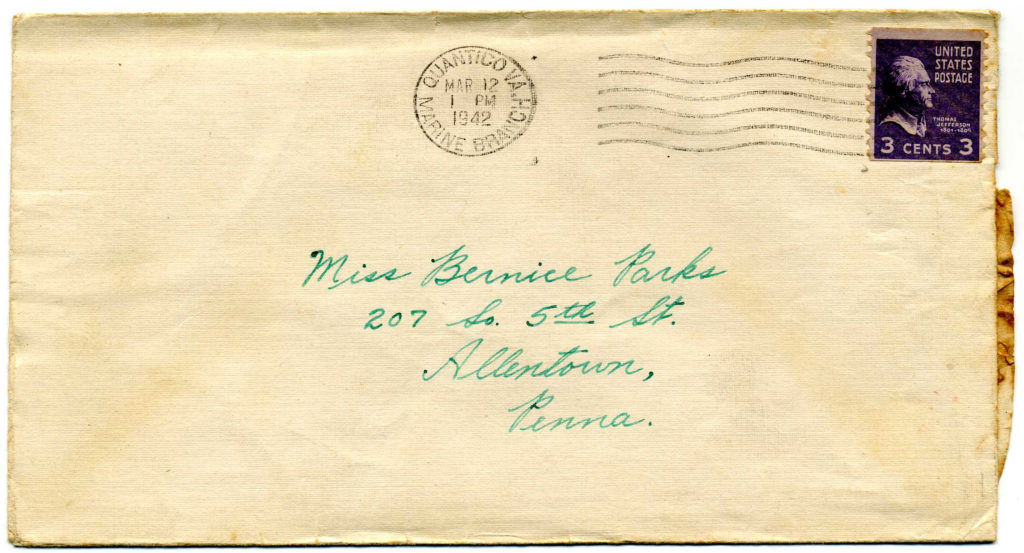 QUANTICO VA.
MAR 12
1 PM
1942
MARINE BRANCH
UNITED
STATES
POSTAGE
THOMAS
JEFFERSON
1801-1809
3 CENTS 3
Miss Bernice Parks
207 So. 5th St.
Allentown,
Penna.